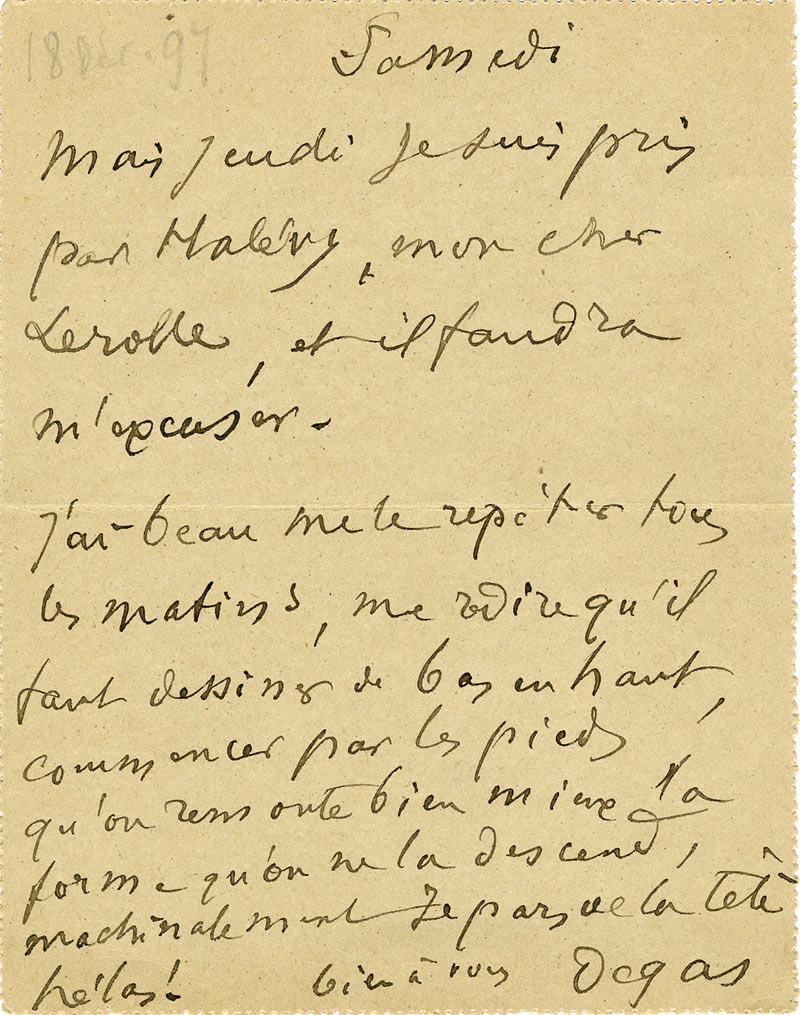 18 Déc. 97
Samedi
Mais Jeudi Je suis pris
par Halévy, mon cher
Lerolle, et il faudra
m'excuser.
J'ai beau me le répéter tous
les matins, me redire qu'il
faut dessiner de bas en haut,
commencer par les pieds,
qu'on remonte bien mieux la
forme qu'on ne la descend,
machinalement Je pars de la tête
hélas! bien à vous Degas